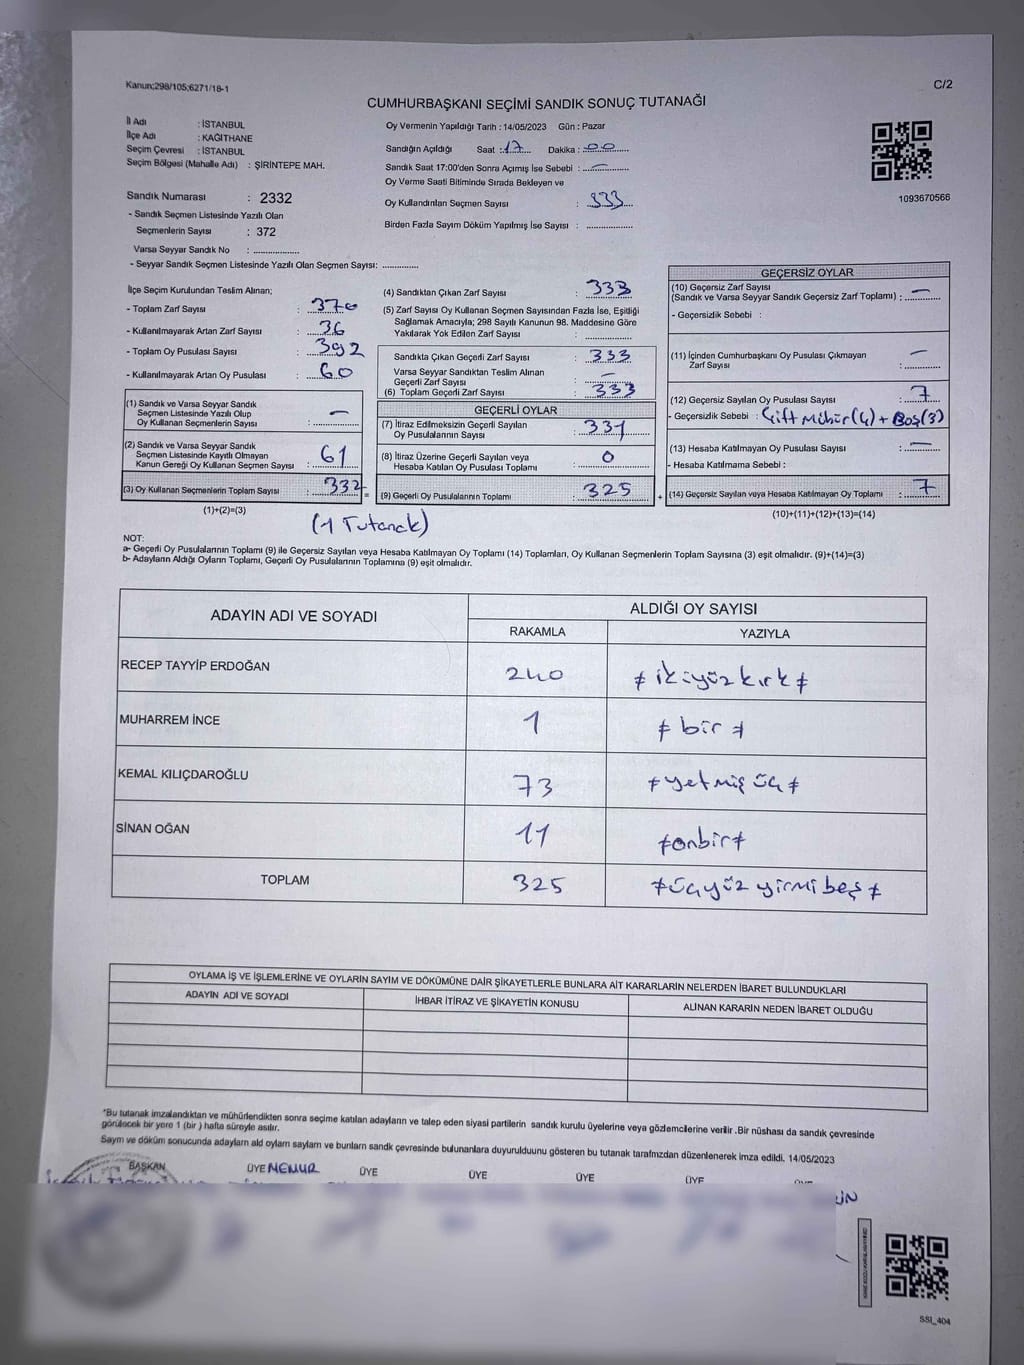 Kanun;298/105;6271/18-1
C/2
CUMHURBAŞKANI SEÇİMİ SANDIK SONUÇ TUTANAĞI
İl Adı : İSTANBUL
İlçe Adı : KAĞITHANE
Seçim Çevresi : İSTANBUL
Seçim Bölgesi (Mahalle Adı) : ŞİRİNTEPE MAH.
Sandık Numarası : 2332
- Sandık Seçmen Listesinde Yazılı Olan
Seçmenlerin Sayısı : 372
Varsa Seyyar Sandık No : ..............
- Seyyar Sandık Seçmen Listesinde Yazılı Olan Seçmen Sayısı: ............
Oy Vermenin Yapıldığı Tarih : 14/05/2023 Gün : Pazar
Sandığın Açıldığı Saat : 17 Dakika : 00
Sandık Saat 17:00'den Sonra Açılmış İse Sebebi : —
Oy Verme Saati Bitiminde Sırada Bekleyen ve
Oy Kullandırılan Seçmen Sayısı : 333
Birden Fazla Sayım Döküm Yapılmış İse Sayısı : ..............
1093670566
İlçe Seçim Kurulundan Teslim Alınan;
- Toplam Zarf Sayısı : 370
- Kullanılmayarak Artan Zarf Sayısı : 36
- Toplam Oy Pusulası Sayısı : 392
- Kullanılmayarak Artan Oy Pusulası : 60
(1) Sandık ve Varsa Seyyar Sandık
Seçmen Listesinde Yazılı Olup
Oy Kullanan Seçmenlerin Sayısı : —
(2) Sandık ve Varsa Seyyar Sandık
Seçmen Listesinde Kayıtlı Olmayan
Kanun Gereği Oy Kullanan Seçmen Sayısı : 61
(3) Oy Kullanan Seçmenlerin Toplam Sayısı : 332 =
(1)+(2)=(3)
(1 Tutanak)
(4) Sandıktan Çıkan Zarf Sayısı : 333
(5) Zarf Sayısı Oy Kullanan Seçmen Sayısından Fazla İse, Eşitliği
Sağlamak Amacıyla; 298 Sayılı Kanunun 98. Maddesine Göre
Yakılarak Yok Edilen Zarf Sayısı : ..............
Sandıkta Çıkan Geçerli Zarf Sayısı : 333
Varsa Seyyar Sandıktan Teslim Alınan
Geçerli Zarf Sayısı : —
(6) Toplam Geçerli Zarf Sayısı : 333
GEÇERLİ OYLAR
(7) İtiraz Edilmeksizin Geçerli Sayılan
Oy Pusulalarının Sayısı : 331
(8) İtiraz Üzerine Geçerli Sayılan veya
Hesaba Katılan Oy Pusulası Toplamı : 0
(9) Geçerli Oy Pusulalarının Toplamı : 325 +
GEÇERSİZ OYLAR
(10) Geçersiz Zarf Sayısı
(Sandık ve Varsa Seyyar Sandık Geçersiz Zarf Toplamı) : —
- Geçersizlik Sebebi :
(11) İçinden Cumhurbaşkanı Oy Pusulası Çıkmayan
Zarf Sayısı : —
(12) Geçersiz Sayılan Oy Pusulası Sayısı : 7
- Geçersizlik Sebebi : Çift Mühür(4) + Boş(3)
(13) Hesaba Katılmayan Oy Pusulası Sayısı : —
- Hesaba Katılmama Sebebi :
(14) Geçersiz Sayılan veya Hesaba Katılmayan Oy Toplamı : 7
(10)+(11)+(12)+(13)=(14)
NOT:
a- Geçerli Oy Pusulalarının Toplamı (9) ile Geçersiz Sayılan veya Hesaba Katılmayan Oy Toplamı (14) Toplamları, Oy Kullanan Seçmenlerin Toplam Sayısına (3) eşit olmalıdır. (9)+(14)=(3)
b- Adayların Aldığı Oyların Toplamı, Geçerli Oy Pusulalarının Toplamına (9) eşit olmalıdır.
ADAYIN ADI VE SOYADI
ALDIĞI OY SAYISI
RAKAMLA YAZIYLA
RECEP TAYYİP ERDOĞAN 240 ≠ ikiyüzkırk ≠
MUHARREM İNCE 1 ≠ bir ≠
KEMAL KILIÇDAROĞLU 73 ≠ yetmiş üç ≠
SİNAN OĞAN 11 ≠ onbir ≠
TOPLAM 325 ≠ üçyüz yirmi beş ≠
OYLAMA İŞ VE İŞLEMLERİNE VE OYLARIN SAYIM VE DÖKÜMÜNE DAİR ŞİKAYETLERLE BUNLARA AİT KARARLARIN NELERDEN İBARET BULUNDUKLARI
ADAYIN ADI VE SOYADI İHBAR İTİRAZ VE ŞİKAYETİN KONUSU ALINAN KARARIN NEDEN İBARET OLDUĞU
"Bu tutanak imzalandıktan ve mühürlendikten sonra seçime katılan adayların ve talep eden siyasi partilerin sandık kurulu üyelerine veya gözlemcilerine verilir .Bir nüshası da sandık çevresinde
görülecek bir yere 1 (bir ) hafta süreyle asılır.
Sayım ve döküm sonucunda adayların ald oyların sayların ve bunların sandık çevresinde bulunanlara duyurulduunu gösteren bu tutanak tarafmzdan düzenlenerek imza edildi. 14/05/2023
BAŞKAN ÜYE MEMUR ÜYE ÜYE ÜYE ÜYE
SSI_404